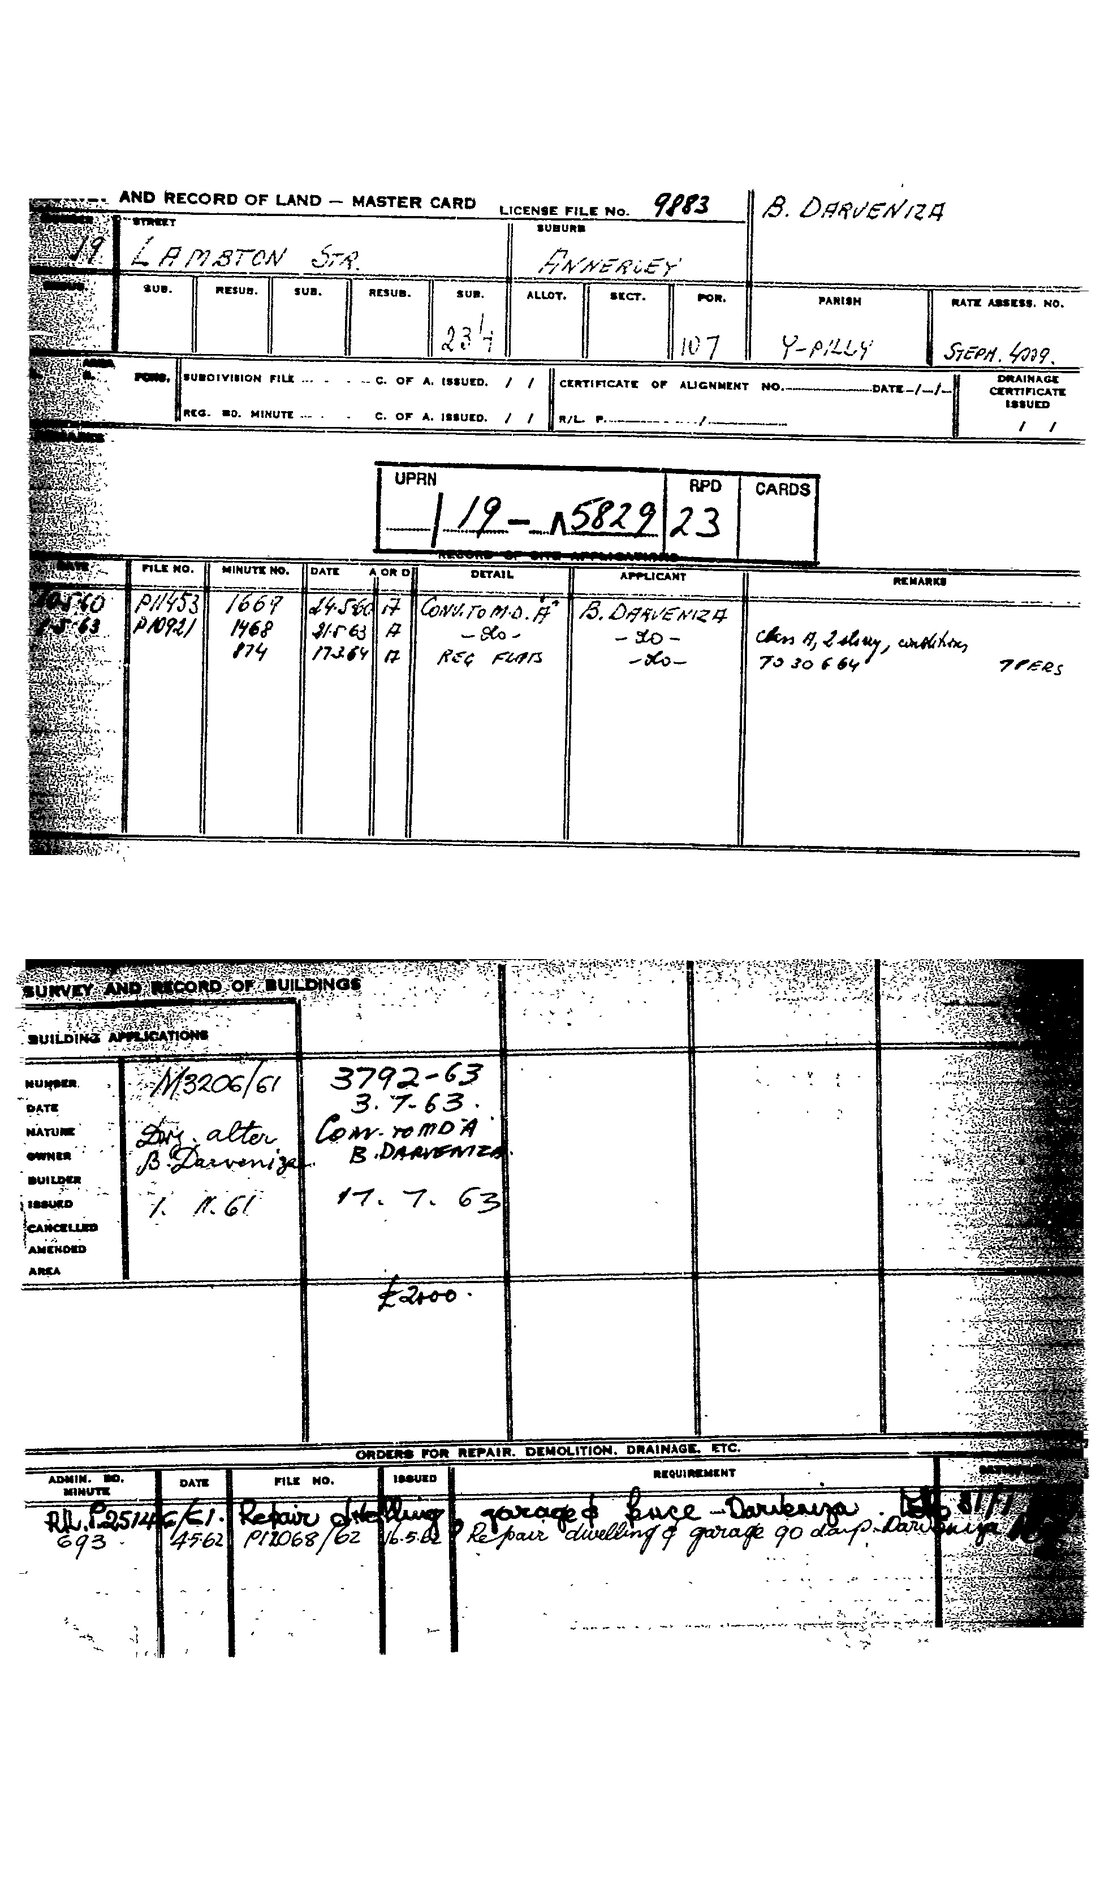 AND RECORD OF LAND — MASTER CARD LICENSE FILE No. 9883 B. DARVENIZA
NUMBER STREET SUBURB
19 LAMBTON STR. ANNERLEY
SUB. RESUB. SUB. RESUB. SUB. ALLOT. SECT. POR. PARISH RATE ASSESS. NO.
23 107 Y-PILLY STEPH. 4009.
AREA PORS. SUBDIVISION FILE C. OF A. ISSUED. / / CERTIFICATE OF ALIGNMENT NO. DATE / / DRAINAGE CERTIFICATE ISSUED
REG. BD. MINUTE C. OF A. ISSUED. / / R/L. P. / / /
REMARKS
UPRN RPD CARDS
/ 19 - 5829 23
RECORD OF SITE APPLICATIONS
DATE FILE NO. MINUTE NO. DATE A OR D DETAIL APPLICANT REMARKS
P11453 1669 24.5.60 A CONV. TO M.D. "A" B. DARVENIZA
P10921 1468 21.5.63 A -do- -do- Class A, 2 storey, conditions
874 17.3.64 A REG FLATS -do- TO 30 6 64 7 PERS
SURVEY AND RECORD OF BUILDINGS
BUILDING APPLICATIONS
NUMBER M3206/61 3792-63
DATE 3.7-63.
NATURE Dwg. alter CONV. TO MD A
OWNER B. Darveniza. B. DARVENIZA.
BUILDER
ISSUED 1. 11. 61 17. 7. 63
CANCELLED
AMENDED
AREA
£2000.
ORDERS FOR REPAIR, DEMOLITION, DRAINAGE, ETC.
ADMIN. BD. MINUTE DATE FILE NO. ISSUED REQUIREMENT
6/61. Repair dwelling, garage & fence - Darveniza.
693 4.5.62 P12068/62 16.5.62 Repair dwelling & garage 90 days. Darveniza